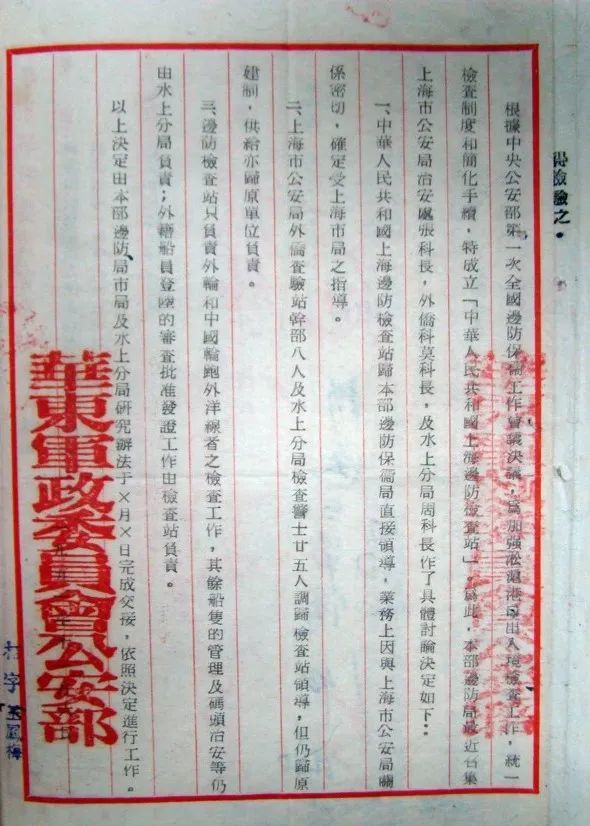 得檢驗之。
根據中央公安部第一次全國邊防保衛工作會議決議，為加强淞滬港口出入境檢查工作，統一
檢查制度和簡化手續，特成立「中華人民共和國上海邊防檢查站」。為此，本部邊防局最近召集
上海市公安局治安處張科長，外僑科莫科長，及水上分局周科長作了具體討論決定如下：
一、中華人民共和國上海邊防檢查站歸本部邊防保衛局直接領導，業務上因與上海市公安局關
係密切，確定受上海市局之指導。
二、上海市公安局外僑查驗站幹部八人及水上分局檢查警士廿五人調歸檢查站領導，但仍歸原
建制，供給亦歸原單位負責。
三、邊防檢查站只負責外輪和中國輪跑外洋線者之檢查工作，其餘船隻的管理及碼頭治安等仍
由水上分局負責；外籍船員登陸的審查批准發證工作由檢查站負責。
以上決定由本部邊防局市局及水上分局研究辦法于×月×日完成交接，依照決定進行工作。
華東軍政委員會公安部
打字王鳳梅